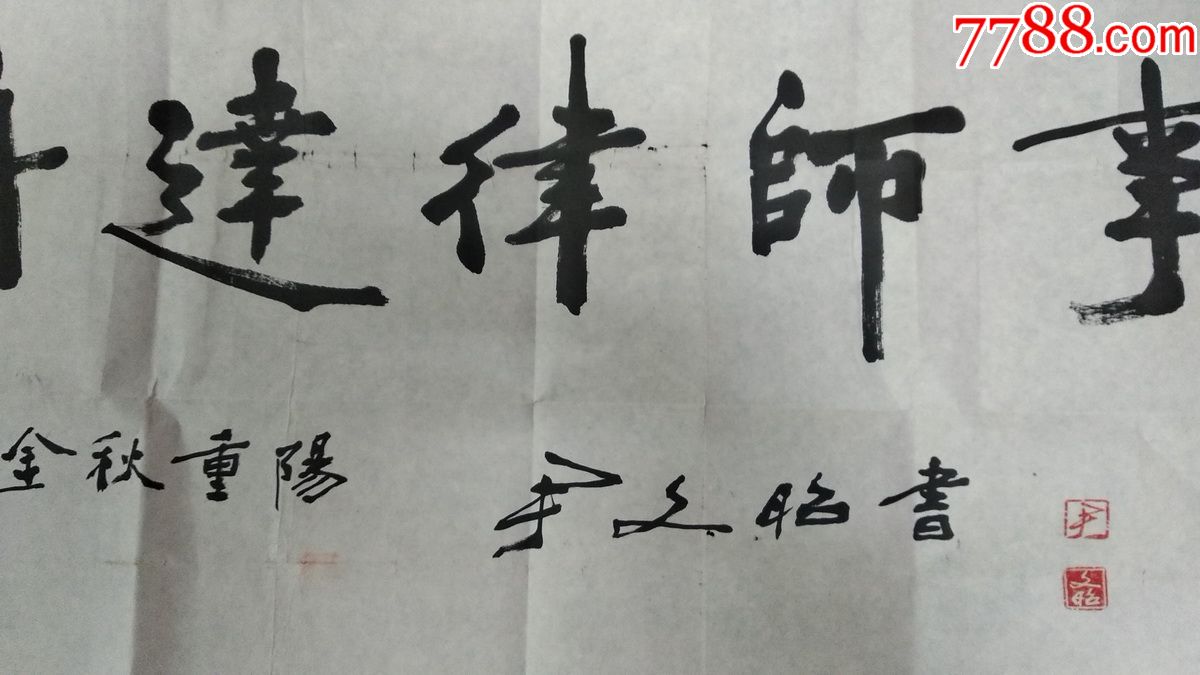 7788.com
達律師事
金秋重陽
尹文昭書
尹
文昭